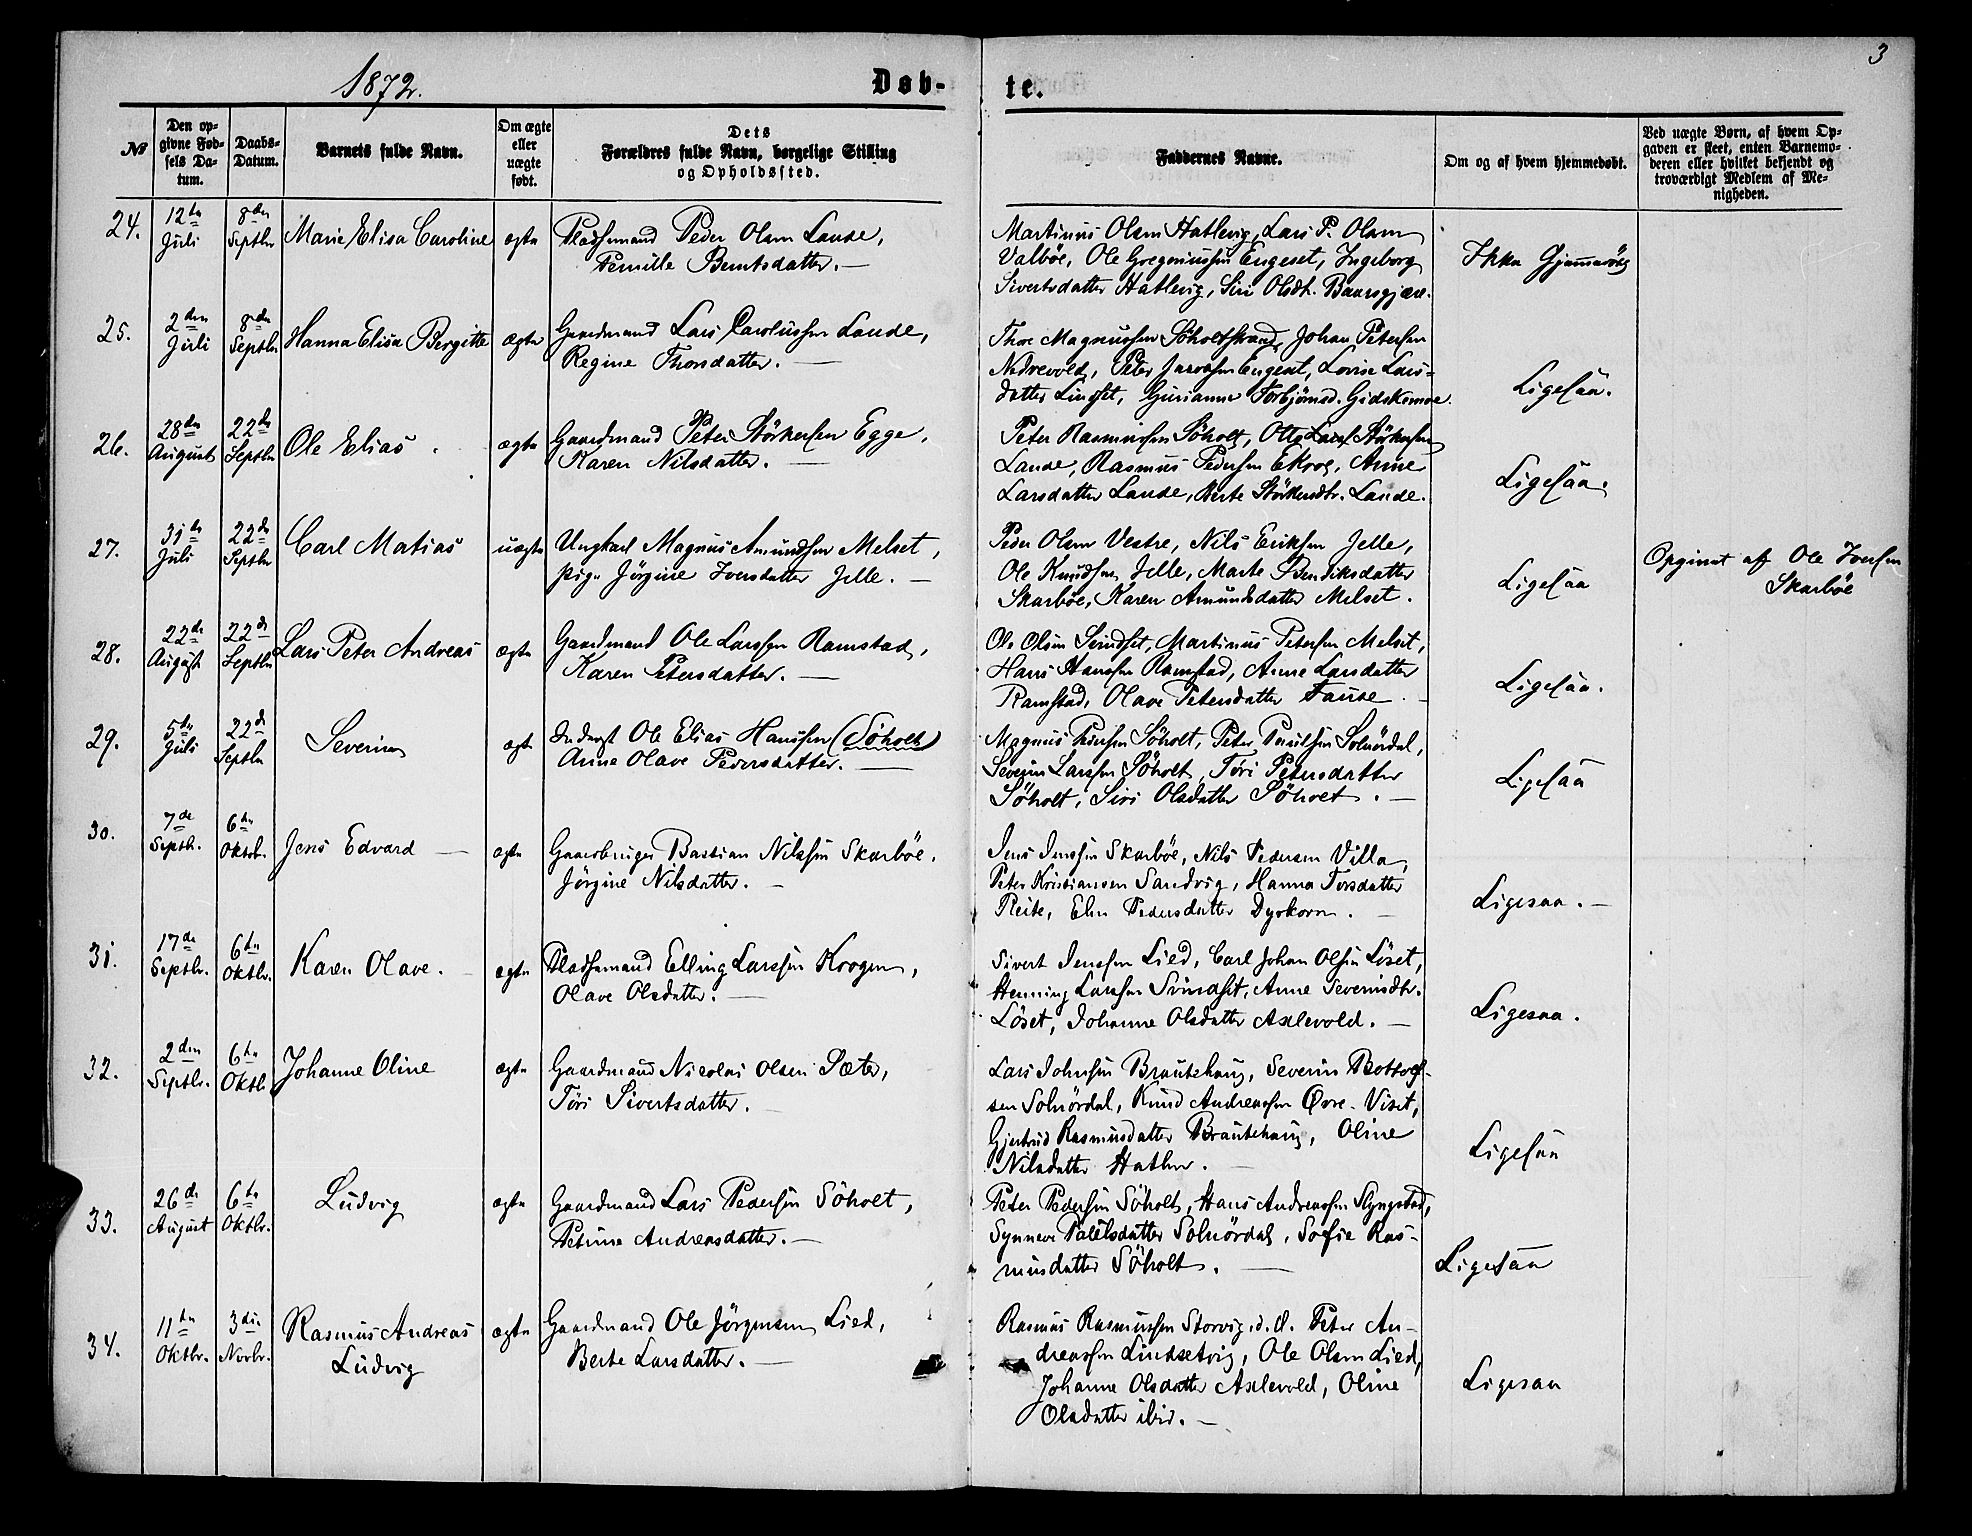 1872.
Døb-
te.
3
№
Den op-
givne Fød-
sels Da-
tum.
Daabs-
Datum.
Barnets fulde Navn.
Om ægte
eller
uægte
født.
Dets
Forældres fulde Navn, borgelige Stilling
og Opholdssted.
Faddernes Navne.
Om og af hvem hjemmedøbt.
Ved uægte Børn, af hvem Op-
gaven er skeet, enten Barnemo-
deren eller hvilket bekjendt og
troværdigt Medlem af Me-
nigheden.
24.
12te
Juli
8de
Septbr
Marie Elisa Caroline
ægte
Pladsemand Peder Olsen Lande,
Pernille Berntsdatter. —
Martinus Olsen Hatlevig, Lars P. Olsen
Valbøe, Ole Gregoriussen Engeset, Ingeborg
Sivertsdatter Hatlevig, Siri Olsdt.
Ikke
25.
2den
Juli
8de
Septbr
Hanna Elisa Bergitte
ægte
Gaardmand Lars Carolussen Lande,
Regine Thorsdatter. —
Thore Magnussen Söholtstrand, Johan Petersen
Nedrevold, Peter Engeset, Lovise Lars-
datter Lingset, Gurianne Torbjörnsd.
Ligesaa.
26.
28de
August
22de
Septbr
Ole Elias
ægte
Gaardmand Peter Störkersen Egge,
Karen Nilsdatter. —
Peter Rasmussen Söholt, Störkersen
Lande, Rasmus Pedersen Ekrog, Anne
Larsdatter Lande, Berte Störkersdtr. Lande.
Ligesaa.
27.
31de
Juli
22de
Septbr
Carl Matias
uægte
Ungkarl Magnus Amundsen Melset,
Pige Jörgine Iversdatter Jelle. —
Peder Olsen Vestre, Nils Eriksen Jelle,
Ole Knudsen Jelle, Marte Bendiksdatter
Skarbøe, Karen Amundsdatter Melset.
Ligesaa
Opgivet af Ole Iversen
Skarbøe
28.
22de
August
22de
Septbr
Lars Peter Andreas
ægte
Gaardmand Ole Larssen Ramstad,
Karen Petersdatter. —
Ole Olsen Svindset, Martinus Petersen Melset,
Hans Hanssen Ramstad, Anne Larsdatter
Ramstad, Olave Petersdatter Fause.
Ligesaa.
29.
5te
Juli
22de
Septbr
Severin
ægte
Inderst Ole Elias Hanssen (Söholt)
Anne Olave Pedersdatter. —
Magnus Pedersen Söholt, Peter Paulsen Solnördal,
Severin Larssen Söholt, Töri Petersdatter
Söholt, Siri Olsdatter Söholt. —
Ligesaa
30.
7de
Septb.
6te
Oktob.
Jens Edvard —
ægte
Gaardbruger Bastian Nilssen Skarbøe.
Jörgine Nilsdatter. —
Jens Jenssen Skarbøe, Nils Pedersen Villa,
Peter Kristiansen Sandvig, Hanna Torsdatter
Reite, Elen Pedersdatter Dyrkorn. —
Ligesaa. —
31.
17de
Septbr.
6te
Oktbr.
Karen Olave. —
ægte
Pladsemand Elling Larssen Krogen,
Olave Olsdatter. —
Sivert Jenssen Lied, Carl Johan Olsen Löset,
Henning Larssen Svindset, Anne Severinsdtr.
Löset, Johanne Olsdatter Axlevold. —
Ligesaa.
32.
2den
Septbr.
6te
Oktb.
Johanne Oline
ægte
Gaardmand Nicolai Olsen Sæter,
Töri Sivertsdatter. —
Lars Johnsen Brautehaug, Severin Bottolf-
sen Solnördal, Knud Andreassen Øvre-Viset,
Gjertrud Rasmusdatter Brautehaug, Oline
Nilsdatter Hatlen. —
Ligesaa
33.
26de
August
6te
Oktbr.
Ludvig
ægte
Gaardmand Lars Pedersen Söholt,
Petrine Andreasdatter. —
Peter Pedersen Söholt, Hans Andreassen Slyngstad,
Synneve Paulsdatter Solnördal, Sofie Ras-
musdatter Söholt. —
Ligesaa
34.
11te
Oktbr.
3die
Novbr.
Rasmus Andreas
Ludvig
ægte
Gaardmand Ole Jörgensen Lied,
Berte Larsdatter. —
Rasmus Rasmussen Storvig, Peter An-
dreassen Lindsetvig, Ole Olsen Lied,
Johanne Olsdatter Axlevold, Oline
Olsdatter ibid. —
Ligesaa